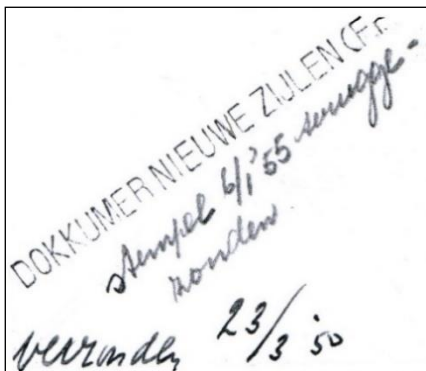 DOKKUMER NIEUWE ZIJLEN (Fr
stempel 6/1 '55 terugge-
zonden
verzonden 23/3 '50